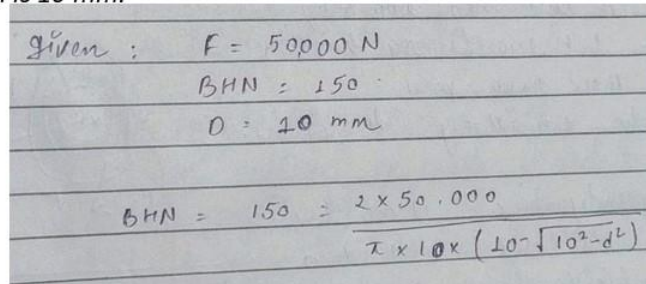 is 10 mm.
given : F = 50,000 N
BHN : 150
D = 10 mm
BHN = 150 = 2 x 50.000
π x 10 x (10-√10²-d²)